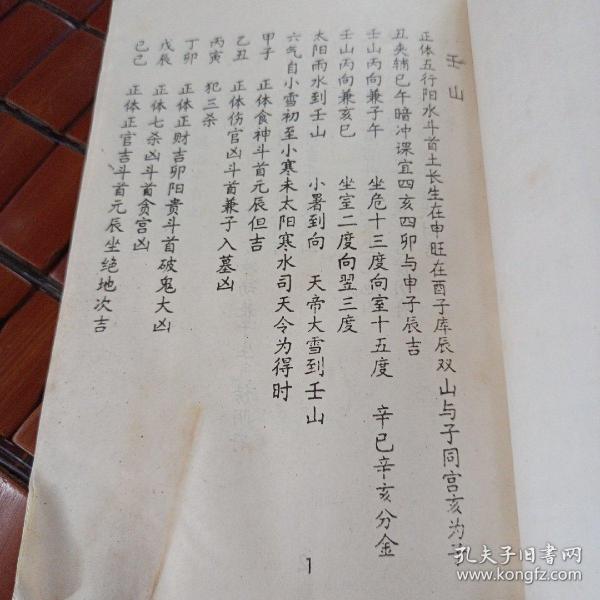 壬山
正体五行阳水斗首土长生在申旺在酉子库辰双山与子同宫亥为
丑夹辅巳午暗冲课宜四亥四卯与申子辰吉
壬山丙向兼子午 坐危十三度向室十五度 辛巳辛亥分金
壬山丙向兼亥巳 坐室二度向翌三度
太阳雨水到壬山 小暑到向 天帝大雪到壬山
六气自小雪初至小寒末太阳寒水司天令为得时
甲子 正体食神斗首元辰但吉
乙丑 正体伤官凶斗首兼子入墓凶
丙寅 犯三杀
丁卯 正体正财吉卯阳贵斗首破鬼大凶
戊辰 正体七杀凶斗首贪官凶
己巳 正体正官吉斗首元辰坐绝地次吉
1
孔夫子旧书网
www.kongfz.com